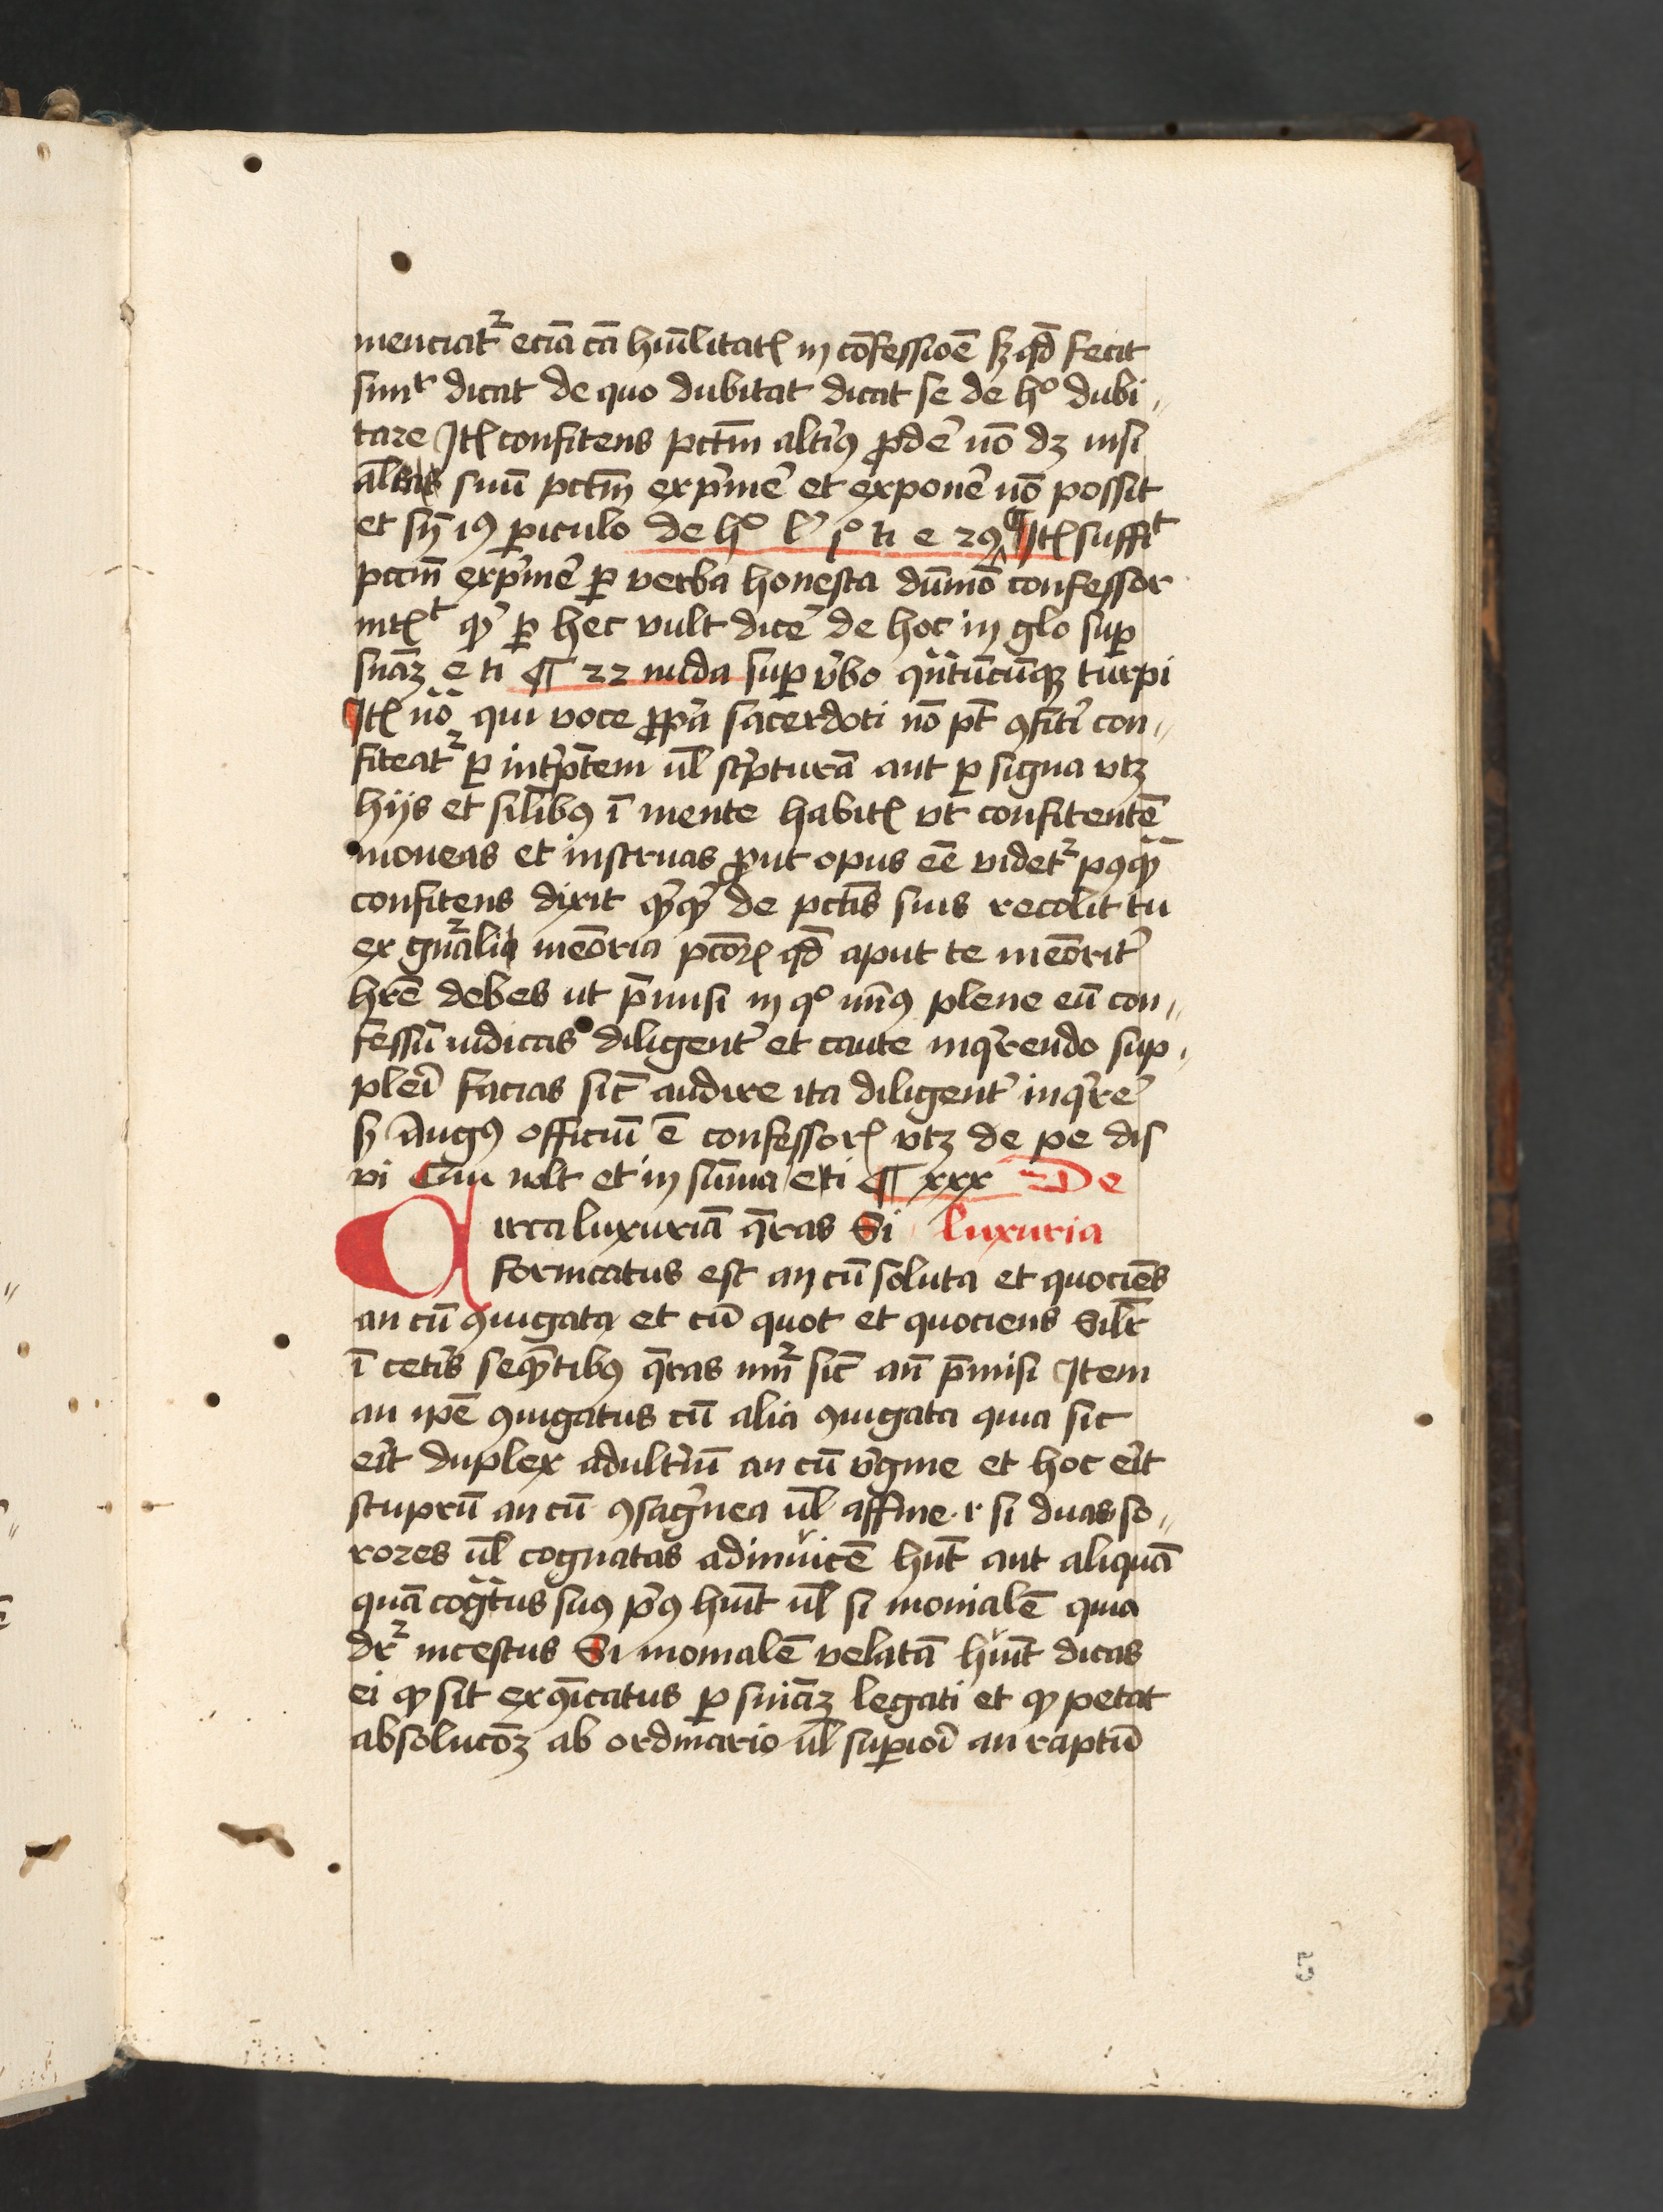 menciat᷑ eciā cā hūilitatꝭ in cōfessiōe sꝫ qd̄ fecit
simᵗ dicat de quo dubitat dicat se de hᵒ dubi〃
tare Itꝭ confitens pctm̄ altiꝰ ꝓde͛ nō dꝫ nisi
al suū pctm̄ exp͛me͛ et expone͛ nō possit
et sn̄ iꝰ ꝑiculo de hᵒ l͛ jᵒ ti e 29 ¶ Itꝭ suffiᵗ
pctm̄ exp͛me͛ ꝑ verba honesta dūmō confessor
intꝭᵗ ꝙ ꝑ hec vult dice͛ de hoc in glo suꝑ
sūaꝫ e ti ¶ 22 nuda suꝑ v͛bo qn̄tūcūqꝫ turpi
Itꝭ nō qui voce ꝓp͛a sacerdoti nō pt̄ ꝯfit͛i con〃
fiteat᷑ ꝑ int͛p̄tem ul̄ sc͛pturā aut ꝑ signa vtꝫ
hijs et sil̄ibꝰ ī mente habitꝭ vt confitentē
moneas et instruas ꝓut opus eē videt᷑ pꝰqꝫ
confitens dixit ꝙꝙ de pctīs suis recolit tu
ex gn̄ali meōria pcōꝝ qd̄ aput te meōrit͛
hr̄e debes ut p̄misi in qᵒ miꝰ plene eū con〃
fessū iudicas diligent͛ et caute inq͛rendo sup〃
plei͛ facias sic̄ audire ita diligent͛ inq͛re͛
sꝫ Augꝰ officiū ē confessorꝭ vtꝫ de pe dis
vi Cui vlt et in sūma e ti ¶ xxx De
Circa luxuriā q̄ras Si luxuria
fornicatus est an cū soluta et quociēs
an cū ꝯiugata et cū quot et quociens Silr̄
ī cet͛is seqn̄tibꝰ q̄ras nūm᷑ sic̄ an̄ p̄misi Item
an ip̄e ꝯiugatus cū alia ꝯiugata quia sic
er͛it duplex adult͛iū an cū v͛gine et hoc er͛it
stuprū an cū ꝯsāg͛nea ul̄ affine r si duas so〃
rores ul̄ cognatas adinvicē hūit aut aliquā
quā cogn̄tus suꝰ p͛ꝰ hūit ul̄ si monialē quia
dr᷑ incestus Si monialē velatā hūit dicas
ei ꝙ sit exꝯīcatus ꝑ snīaꝫ legati et ꝙ petat
absolucōꝫ ab ordinario ul̄ suꝑioi͛ an raptū
5